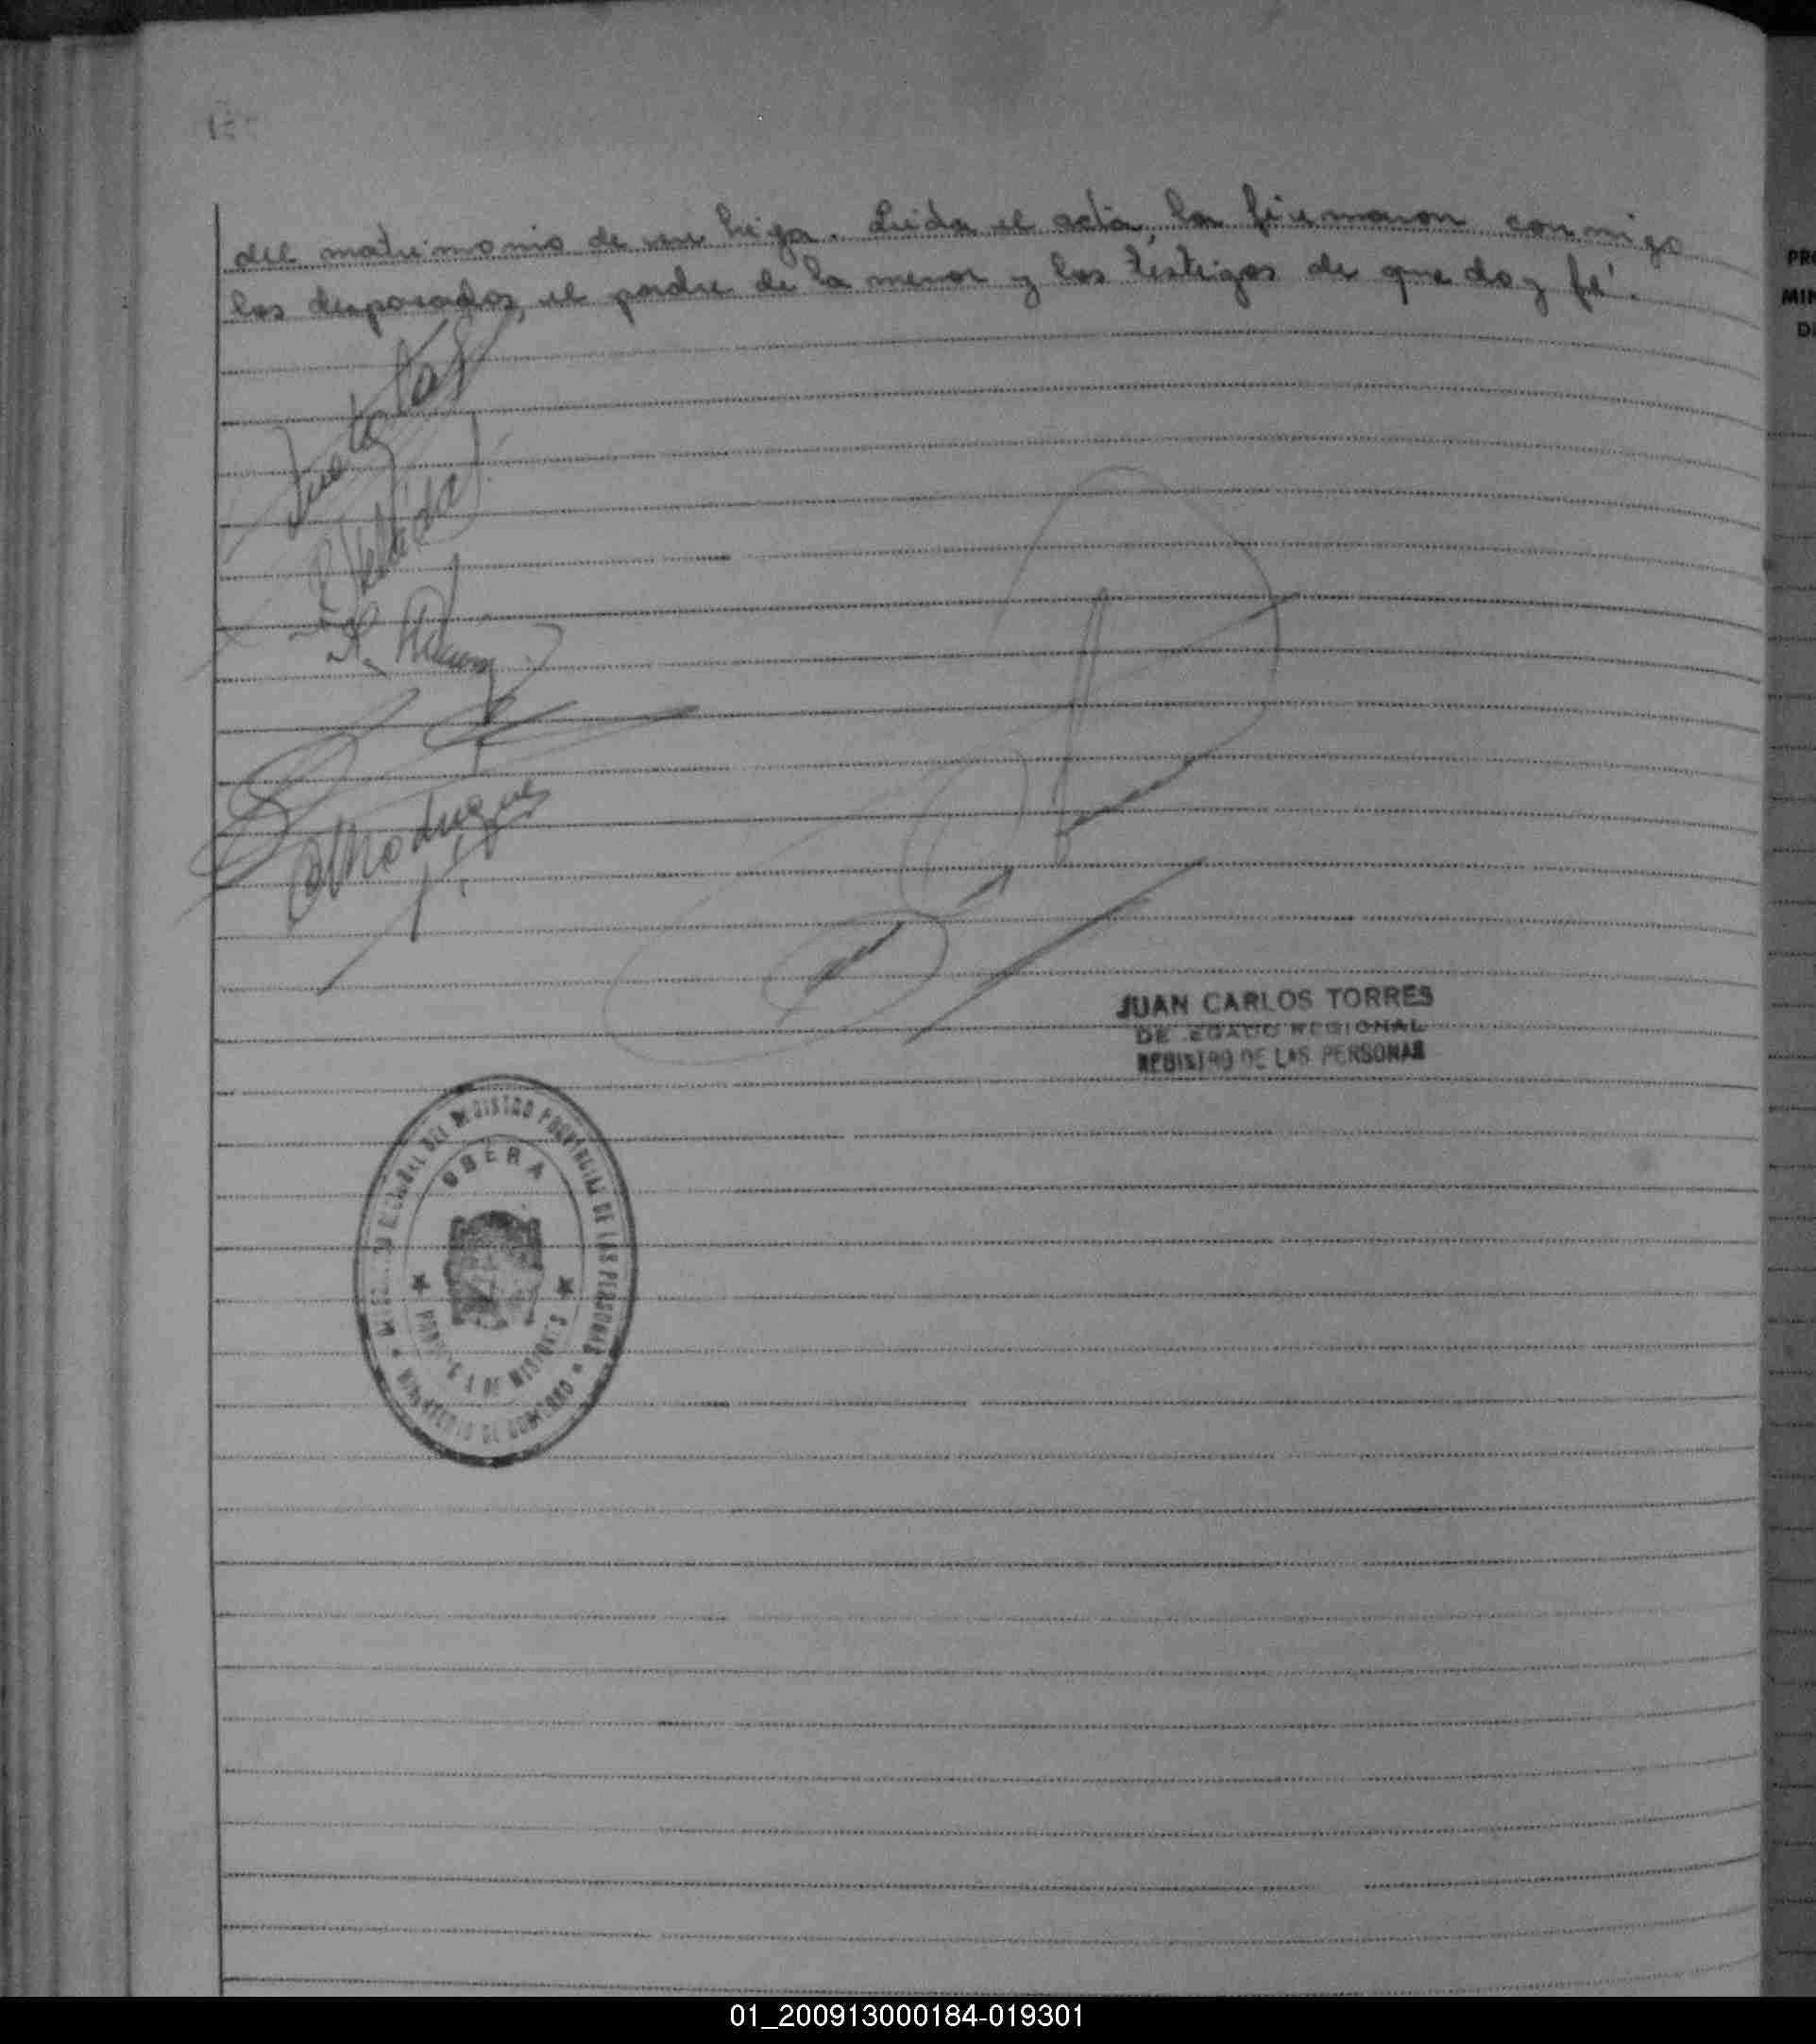 del matrimonio de su hija. Leida el acta, la firmaron conmigo
los desposados, el padre de la menor y los testigos de que doy fé.
JUAN CARLOS TORRES
DELEGADO REGIONAL
REGISTRO DE LAS PERSONAS
DEL REGISTRO PROVINCIAL DE LAS PERSONAS
OBERA
PROVINCIA DE MISIONES
MINISTERIO DE GOBIERNO
PR
MIN
D
01_200913000184-019301